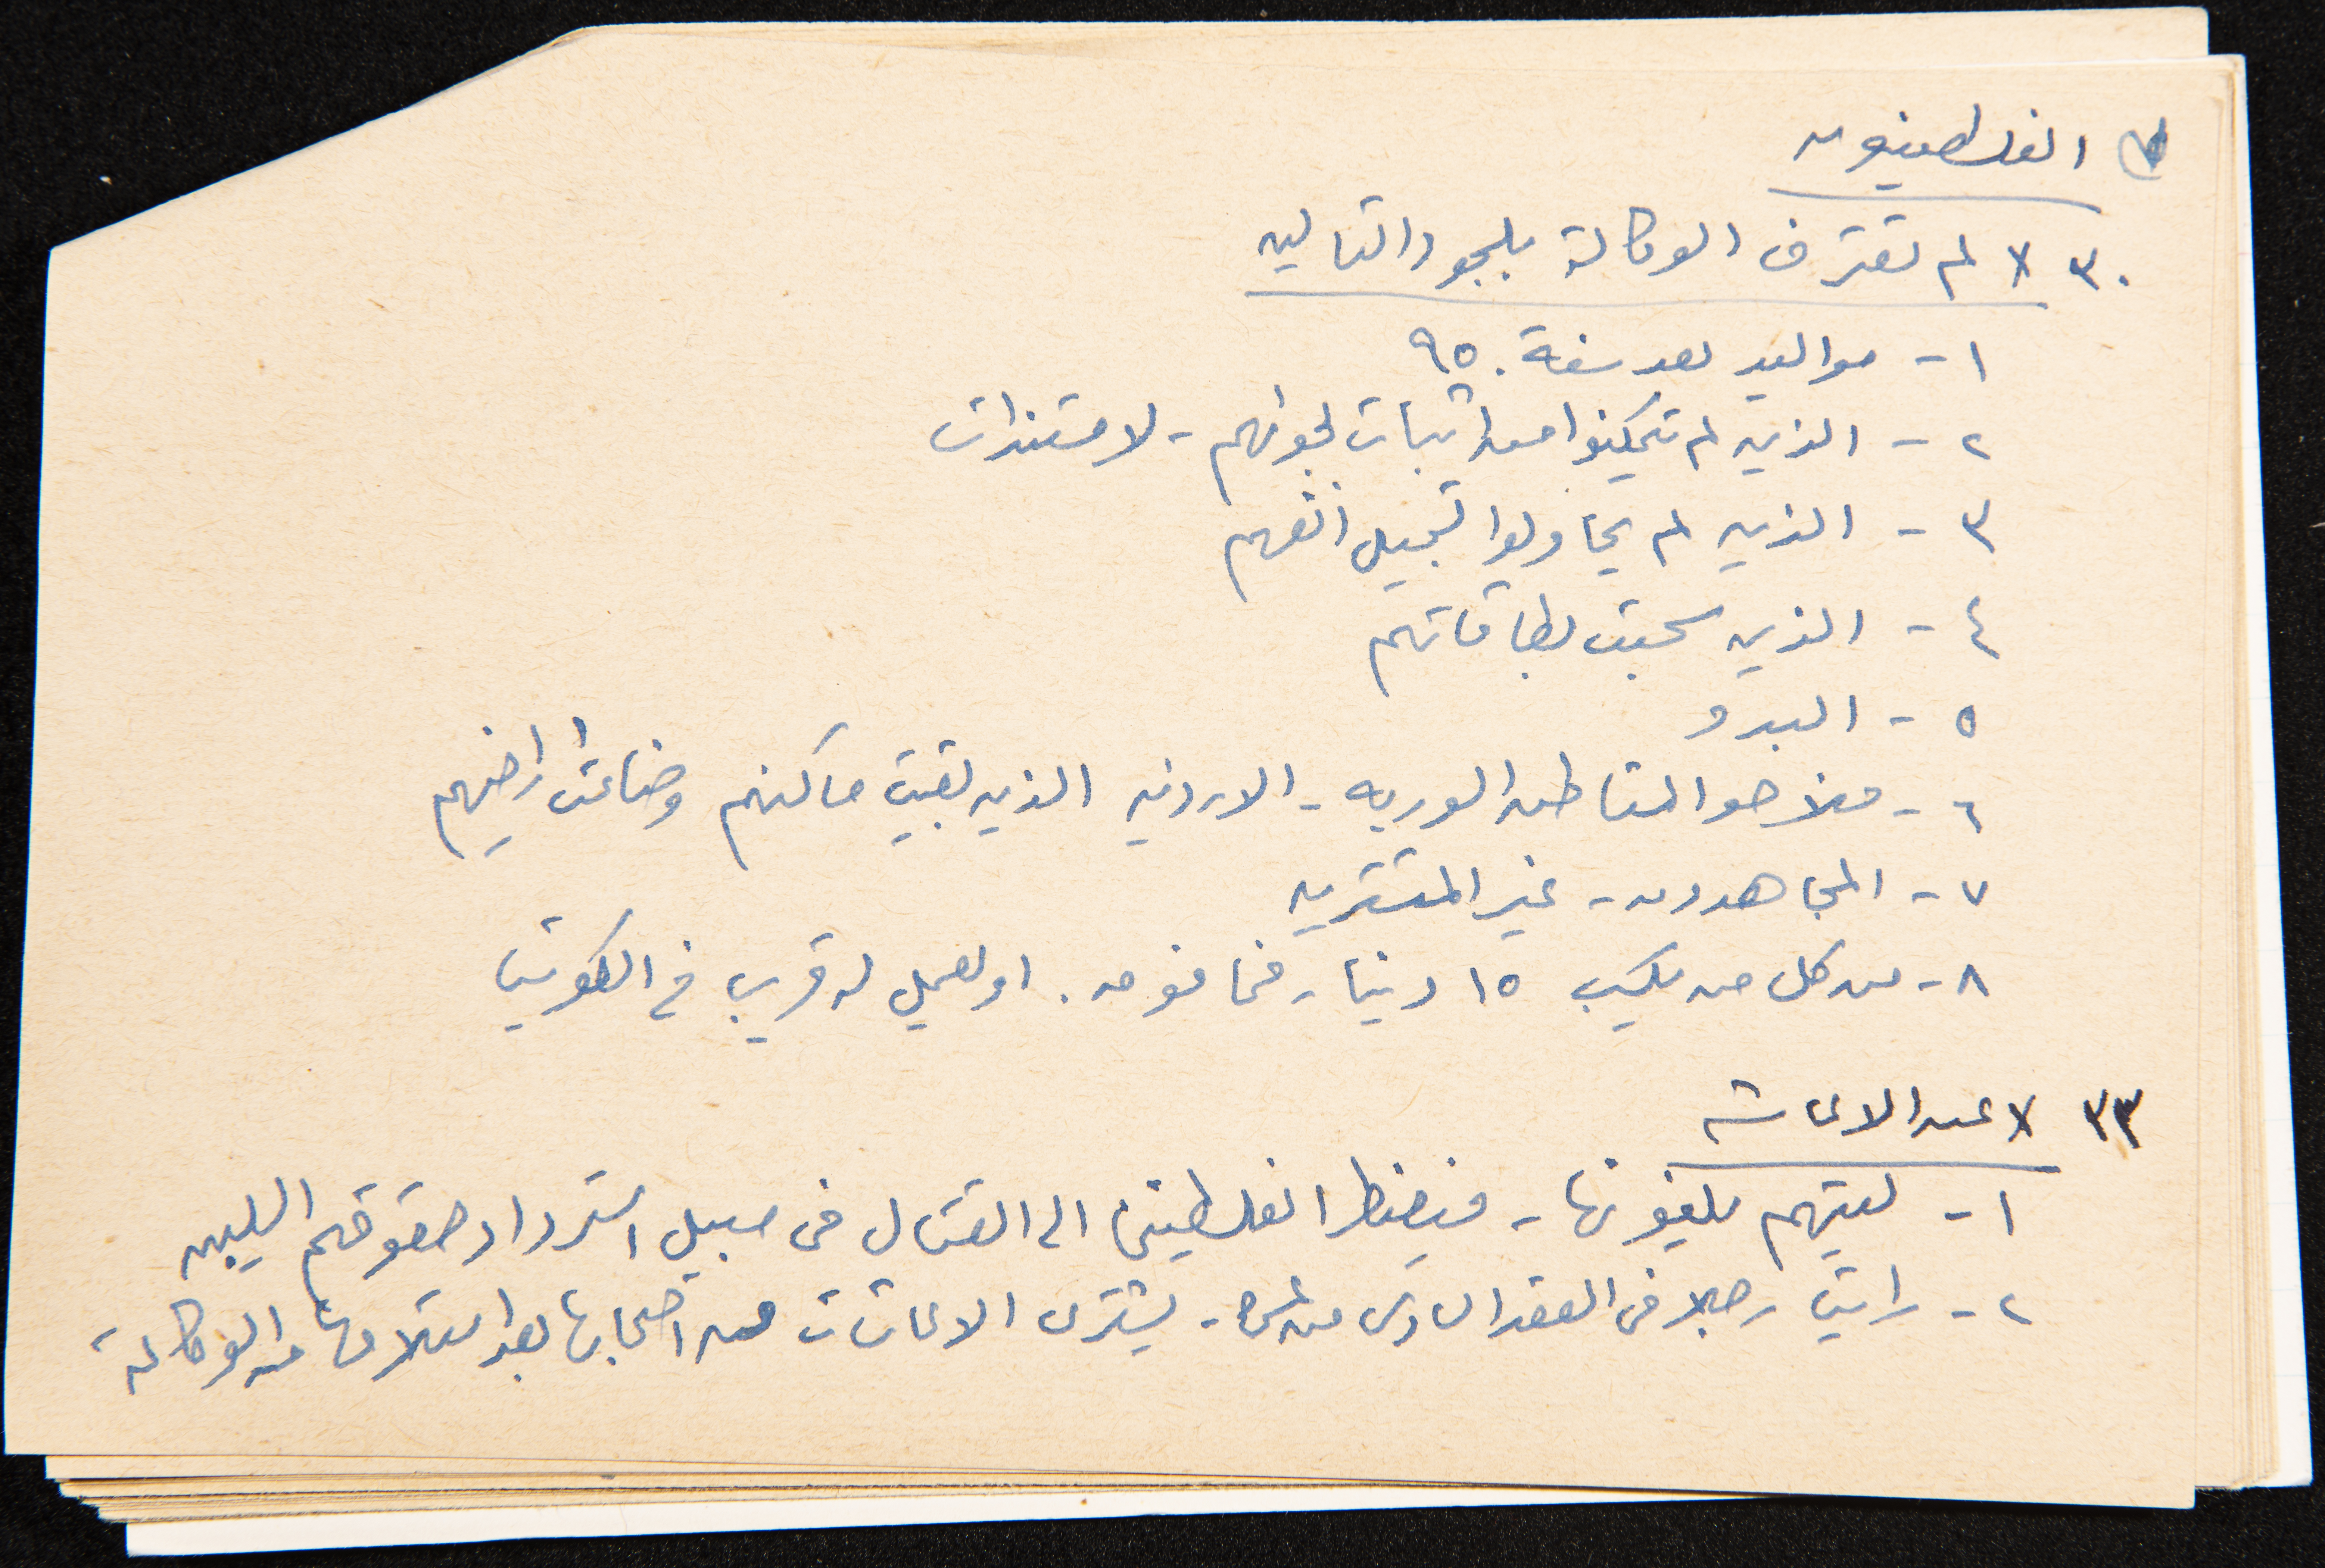 الفلسطينيون
٣٠ لا لم تعترف الوكالة بلجوء التاليه
١- مواليد بعد سنة ٩٥٠
٢- الذين لم يتمكنوا من اثبات لجوئهم - لا مستندات
٣- الذين لم يحاولوا تسجيل انفسهم
٤- الذين سحبت بطاقاتهم
٥- البدو
٦- فلاحو المناطق السوريه - الاردنيه الذين بقيت مساكنهم وضاعت اراضيهم
٧- المجاهدون - غير المستقرين
٨- من كل من يكسب ١٥ دينار فما فوق. او يعمل له قريب في الكويت
٣٣ لا عن الاعاشه
١- ليتهم يلغونها - فيضطر الفلسطيني الى القتال في سبيل استرداد حقوقهم السليبه
٢- رايت رجلا في العقد السادس من عمره - يشتري الاعاشات من اصحابها بعد استلامها من الوكالة